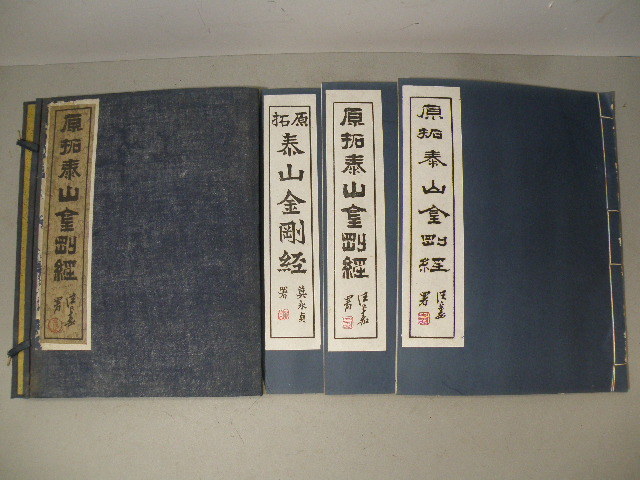 原拓泰山金剛經
署
原拓
泰山金剛経
莫永貞
署
原拓泰山金剛經
署
原拓泰山金剛經
署